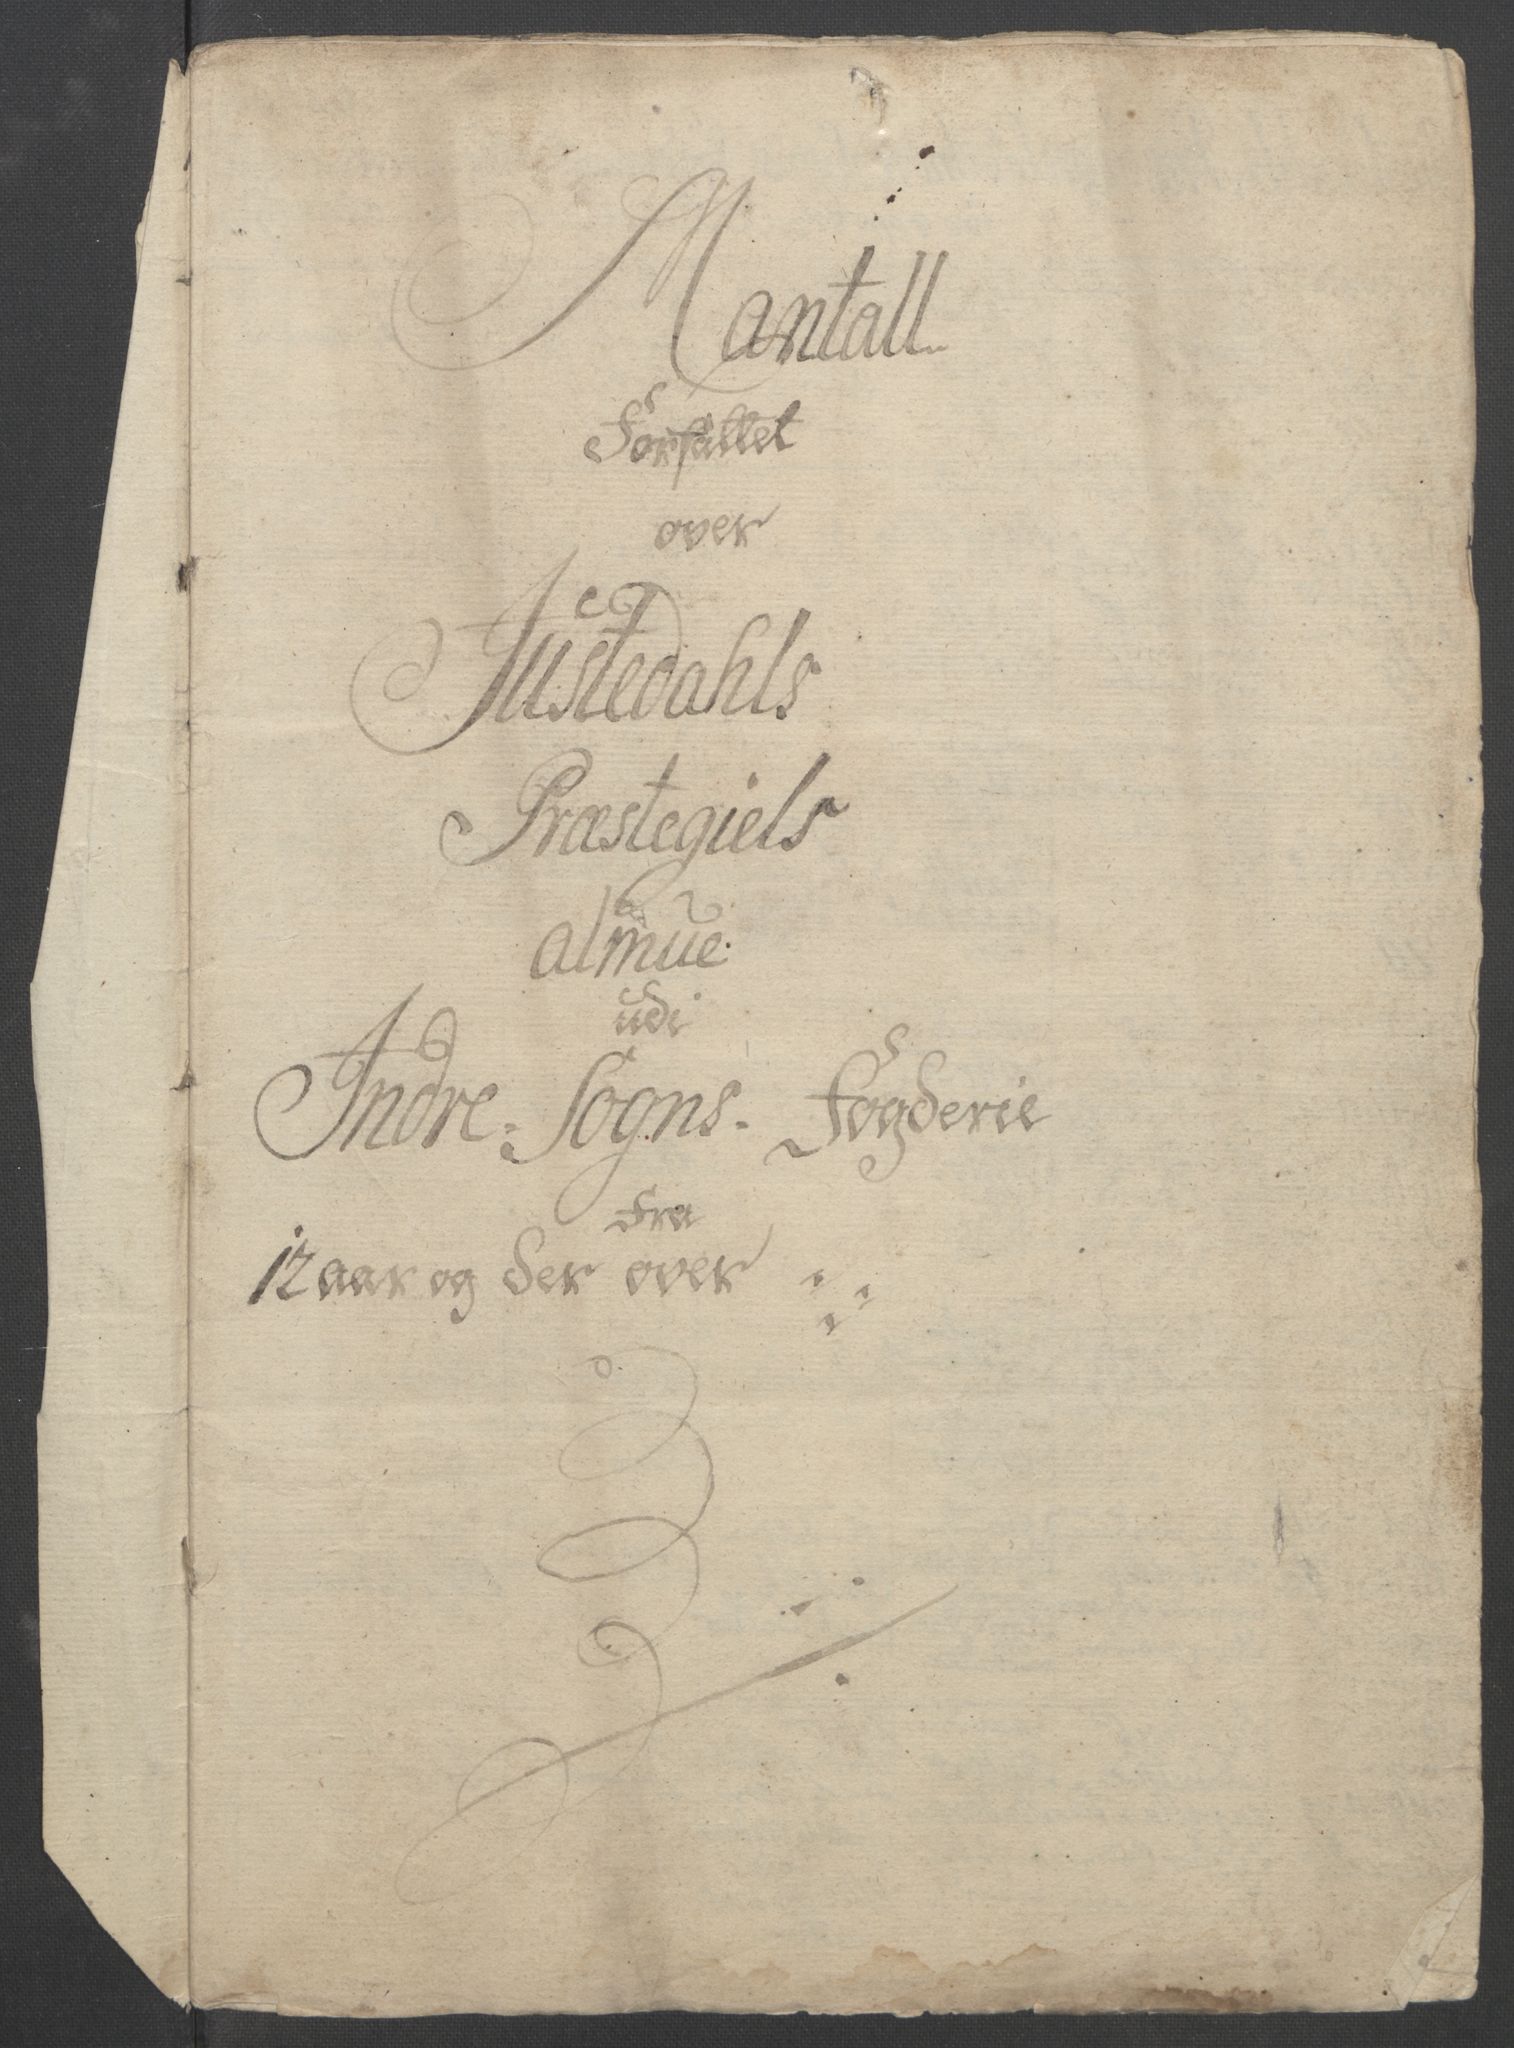 Mantall
Forfattet
over
Justedahls
Præstegiels
almue
udi
Indre. Sogns. Fogderie
fra
12 aar og der over